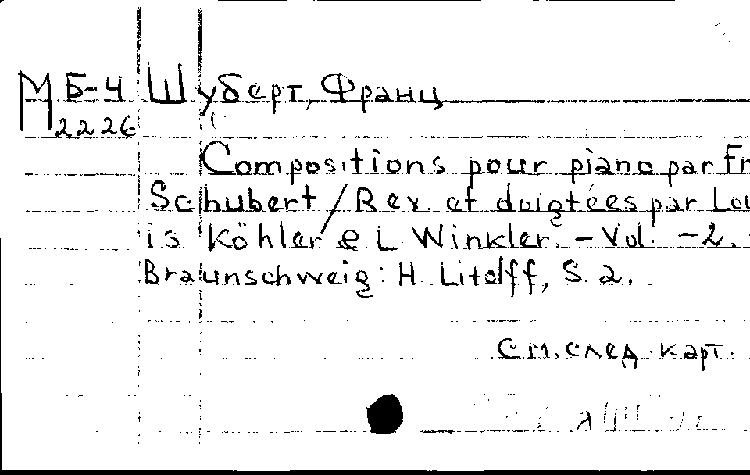 М Б-4 Шуберт, Франц
2226
Compositions pour piano par Fr
Schubert / Rev. et doigtées par Lou
is Köhler e L Winkler. - Vol. - 2. -
Braunschweig: H. Litolff, S. a.
См. след. карт.